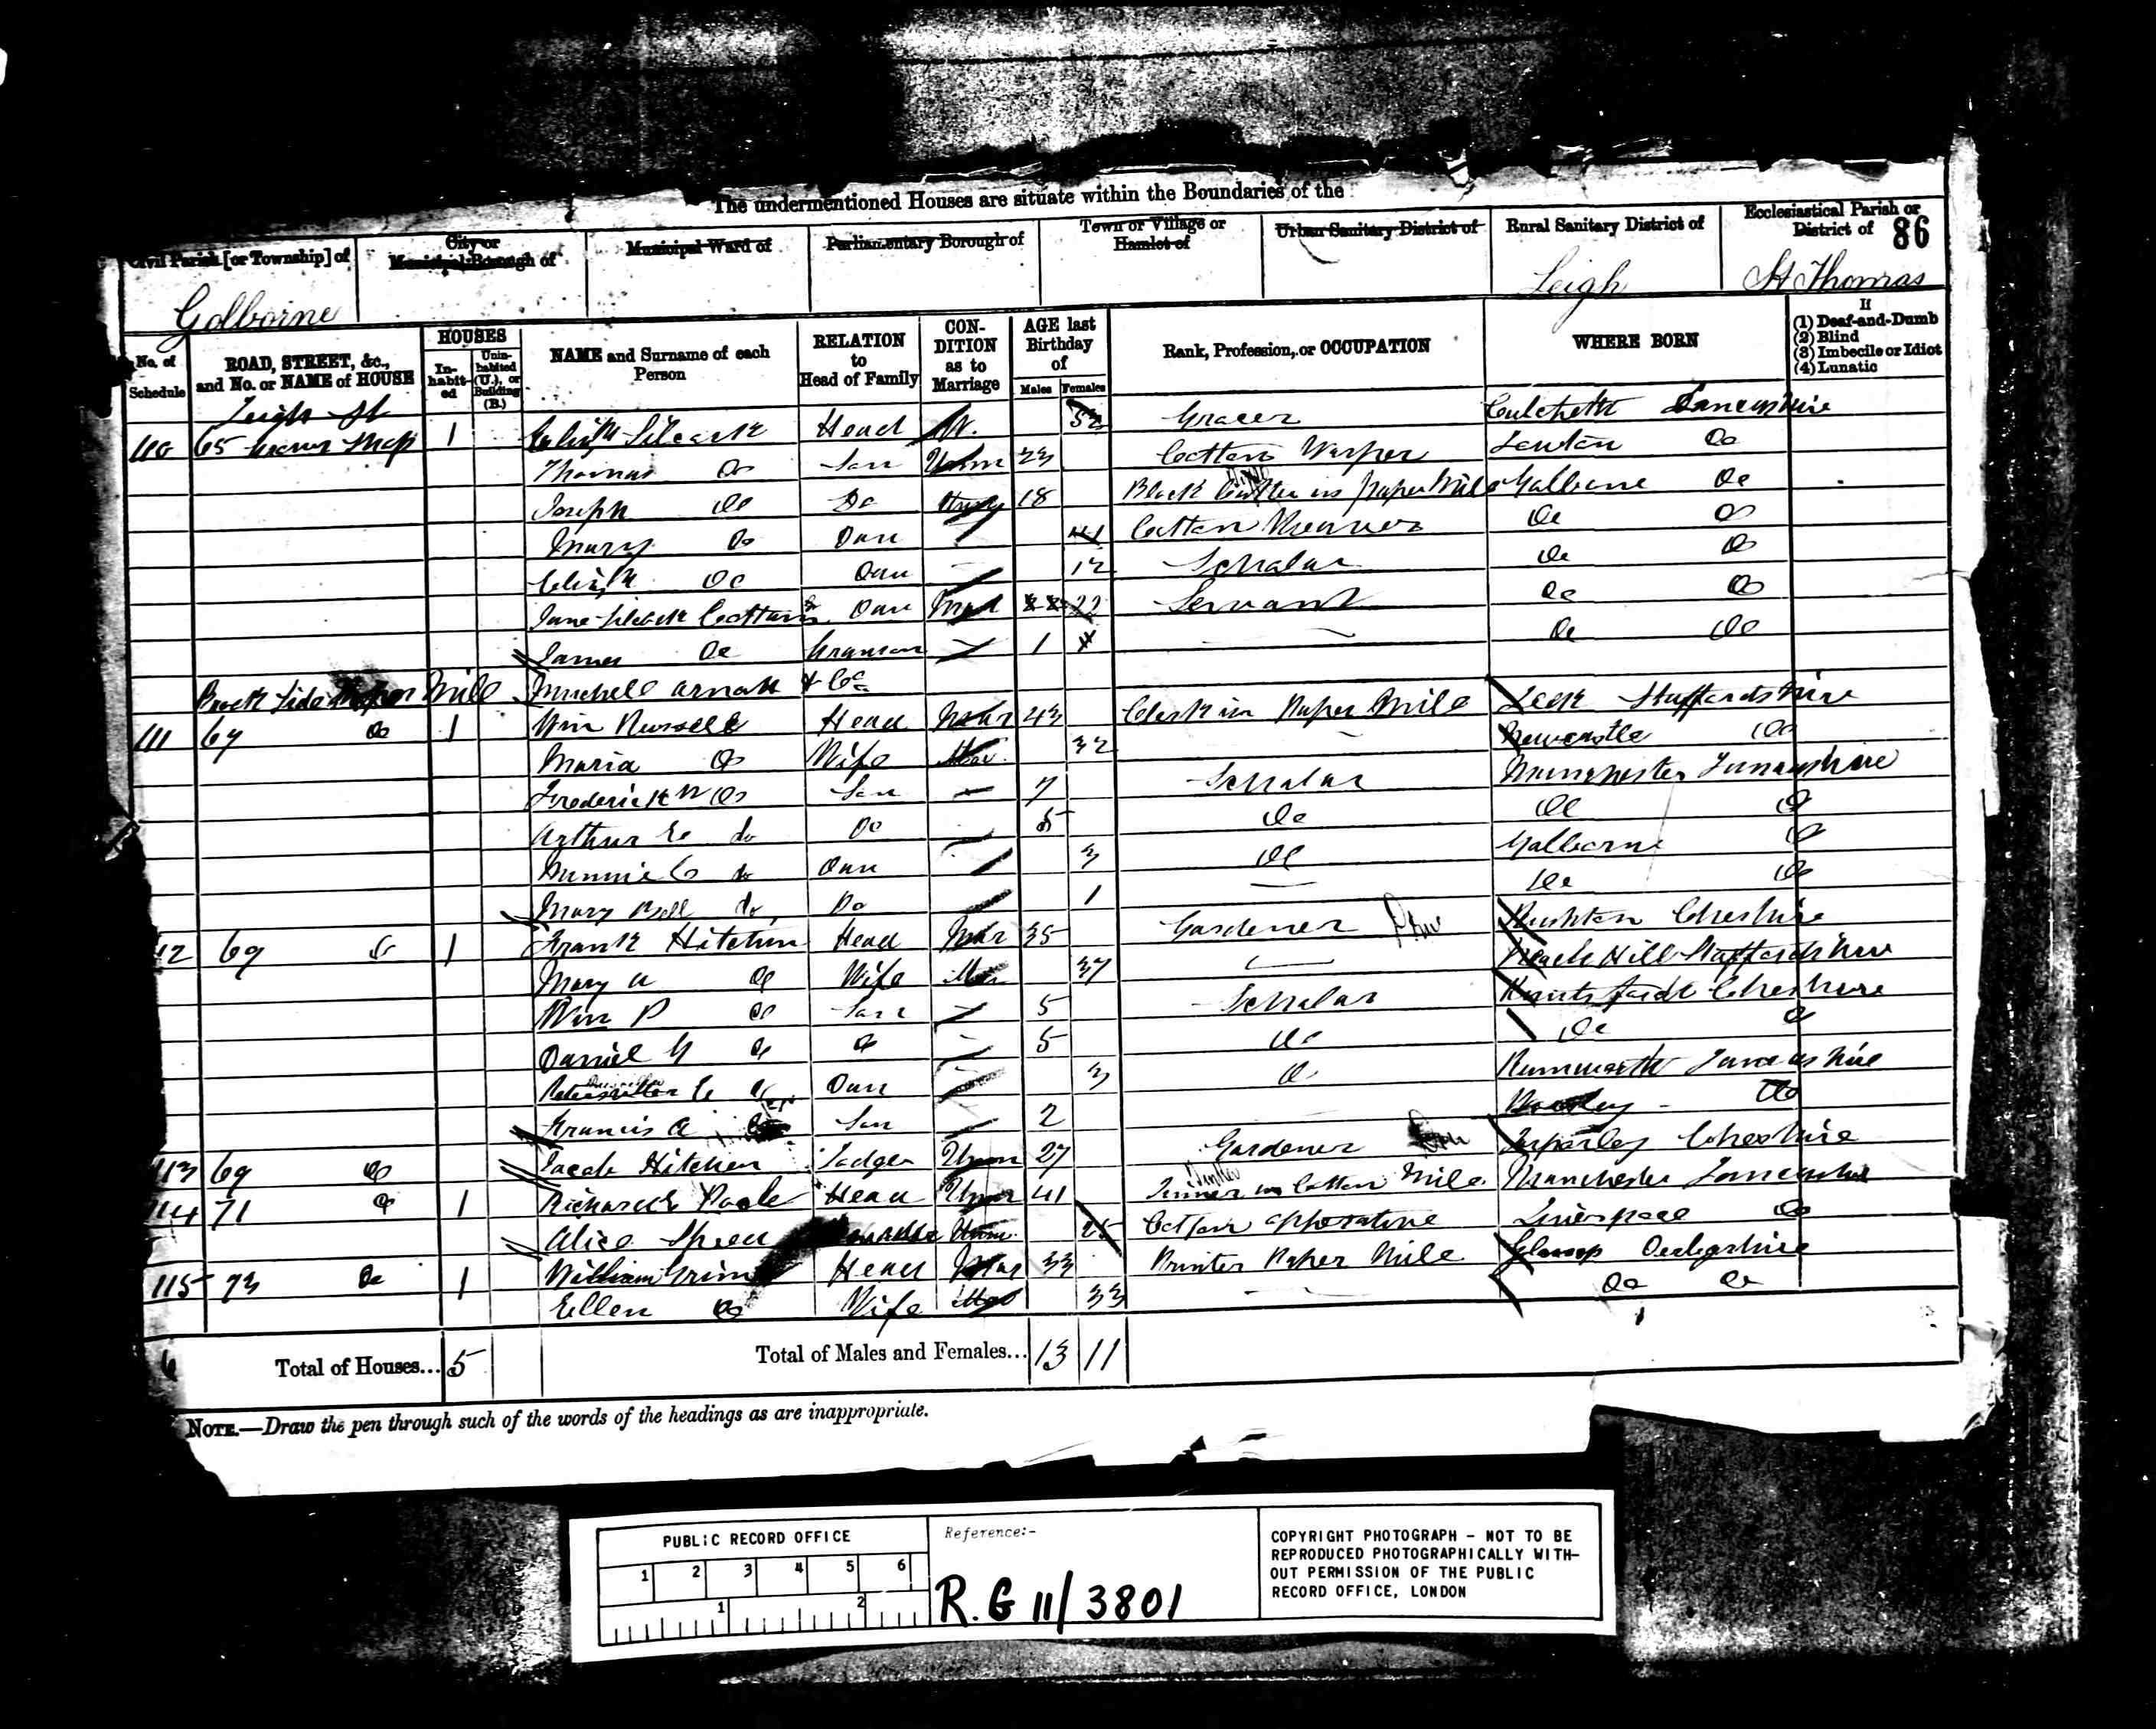 The undermentioned Houses are situate within the Boundaries of the
Civil Parish [or Township] of
City or Municipal Borough of
Municipal Ward of
Parliamentary Borough of
Town or Village or Hamlet of
Urban Sanitary District of
Rural Sanitary District of
Ecclesiastical Parish or District of 86
Golborne Leigh St Thomas
No. of Schedule
ROAD, STREET, &c., and No. or NAME of HOUSE
HOUSES
In-habit-ed
Unin-habited (U.), or Building (B.)
NAME and Surname of each Person
RELATION to Head of Family
CON-DITION as to Marriage
AGE last Birthday of
Males Females
Rank, Profession, or OCCUPATION
WHERE BORN
If
(1) Deaf-and-Dumb
(2) Blind
(3) Imbecile or Idiot
(4) Lunatic
Leigh St
110 65 Shop 1 Head W. 52 Grocer Culcheth Lancashire
Thomas Do Son Unm 23 Cotton Warper Lowton Do
Joseph Do Do 18 in paper Mill Golborne Do
Mary Do Dau Cotton Weaver Do Do
Do Dau 12 Scholar Do Do
Jane Dau 22 Servant Do Do
James Do Granson 1 Do Do
Mill & Co
111 67 Do 1 Wm Russell Head Mar 43 Clerk in Paper Mill Leek Staffordshire
Maria Do Wife Mar 32 Newcastle Do
Frederick W Do Son 7 Scholar Manchester Lancashire
Arthur E do Do 5 Do Do Do
Minnie C do Dau 3 Do Golborne Do
Mary Bell do Do 1 Do Do
112 69 Do 1 Frank Hitchin Head Mar 35 Gardener Cheshire
Mary A Do Wife Mar 37 Staffordshire
Wm P Do Son 5 Scholar Knutsford Cheshire
Daniel G Do Do 5 Do Do Do
E Dau 3 Do Rumworth Lancashire
Francis A Son 2 Do
113 69 Do Jacob Hitchen Lodger Unm 27 Gardener Cheshire
114 71 Do 1 Richard Poole Head Unm 41 Cotton Mill Manchester Lancashire
Alice Unm 25 Cotton opperative Liverpool Do
115 73 Do 1 William Head Mar 33 Printer Paper Mill Glossop Derbyshire
Ellen Do Wife Mar 33 Do Do
6 Total of Houses... 5 Total of Males and Females... 13 11
NOTE.—Draw the pen through such of the words of the headings as are inappropriate.
PUBLIC RECORD OFFICE
1 2 3 4 5 6
1 2
Reference:-
R.G 11/3801
COPYRIGHT PHOTOGRAPH - NOT TO BE
REPRODUCED PHOTOGRAPHICALLY WITH-
OUT PERMISSION OF THE PUBLIC
RECORD OFFICE, LONDON